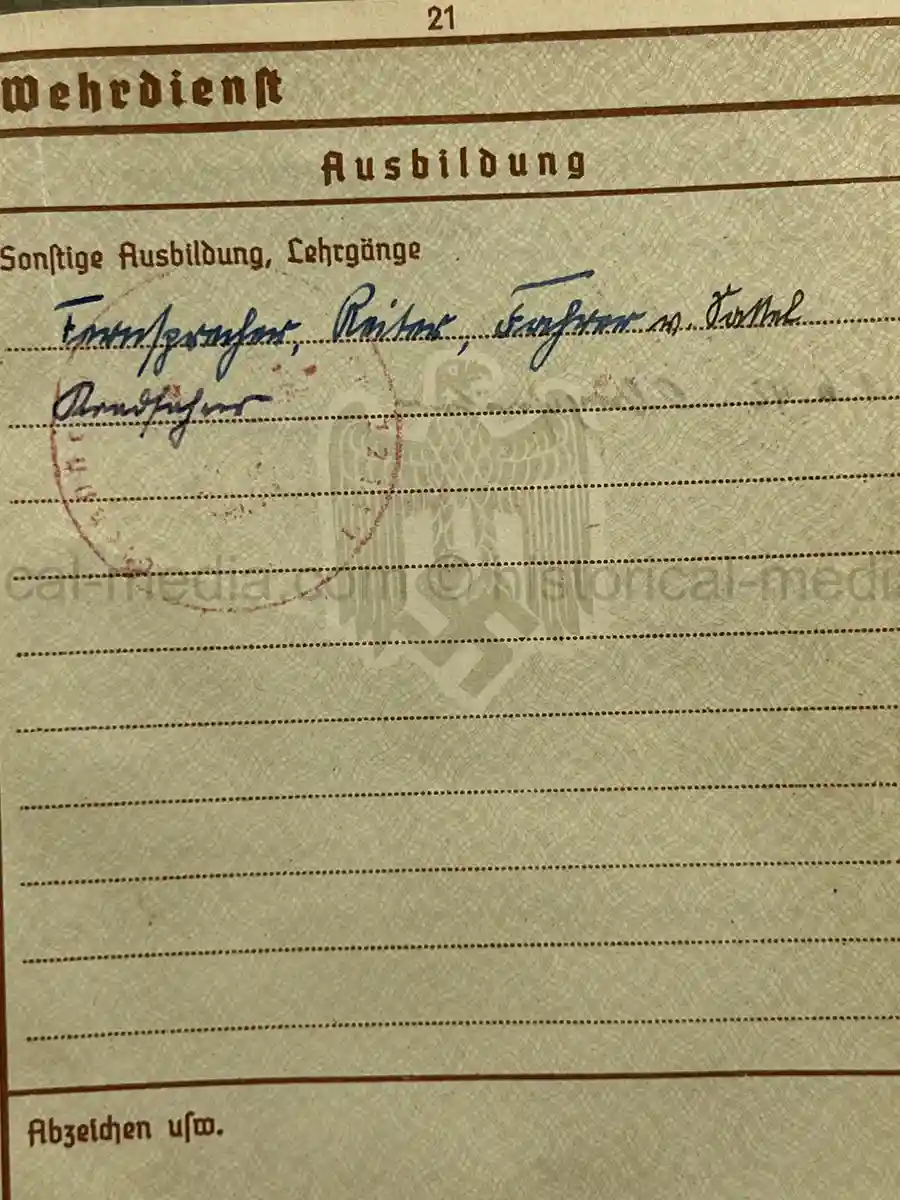 21
Wehrdienst
Ausbildung
Sonstige Ausbildung, Lehrgänge
Fernsprecher, Reiter, Fahrer v. Sattel
cal-media.com © historical-media
Abzeichen usw.